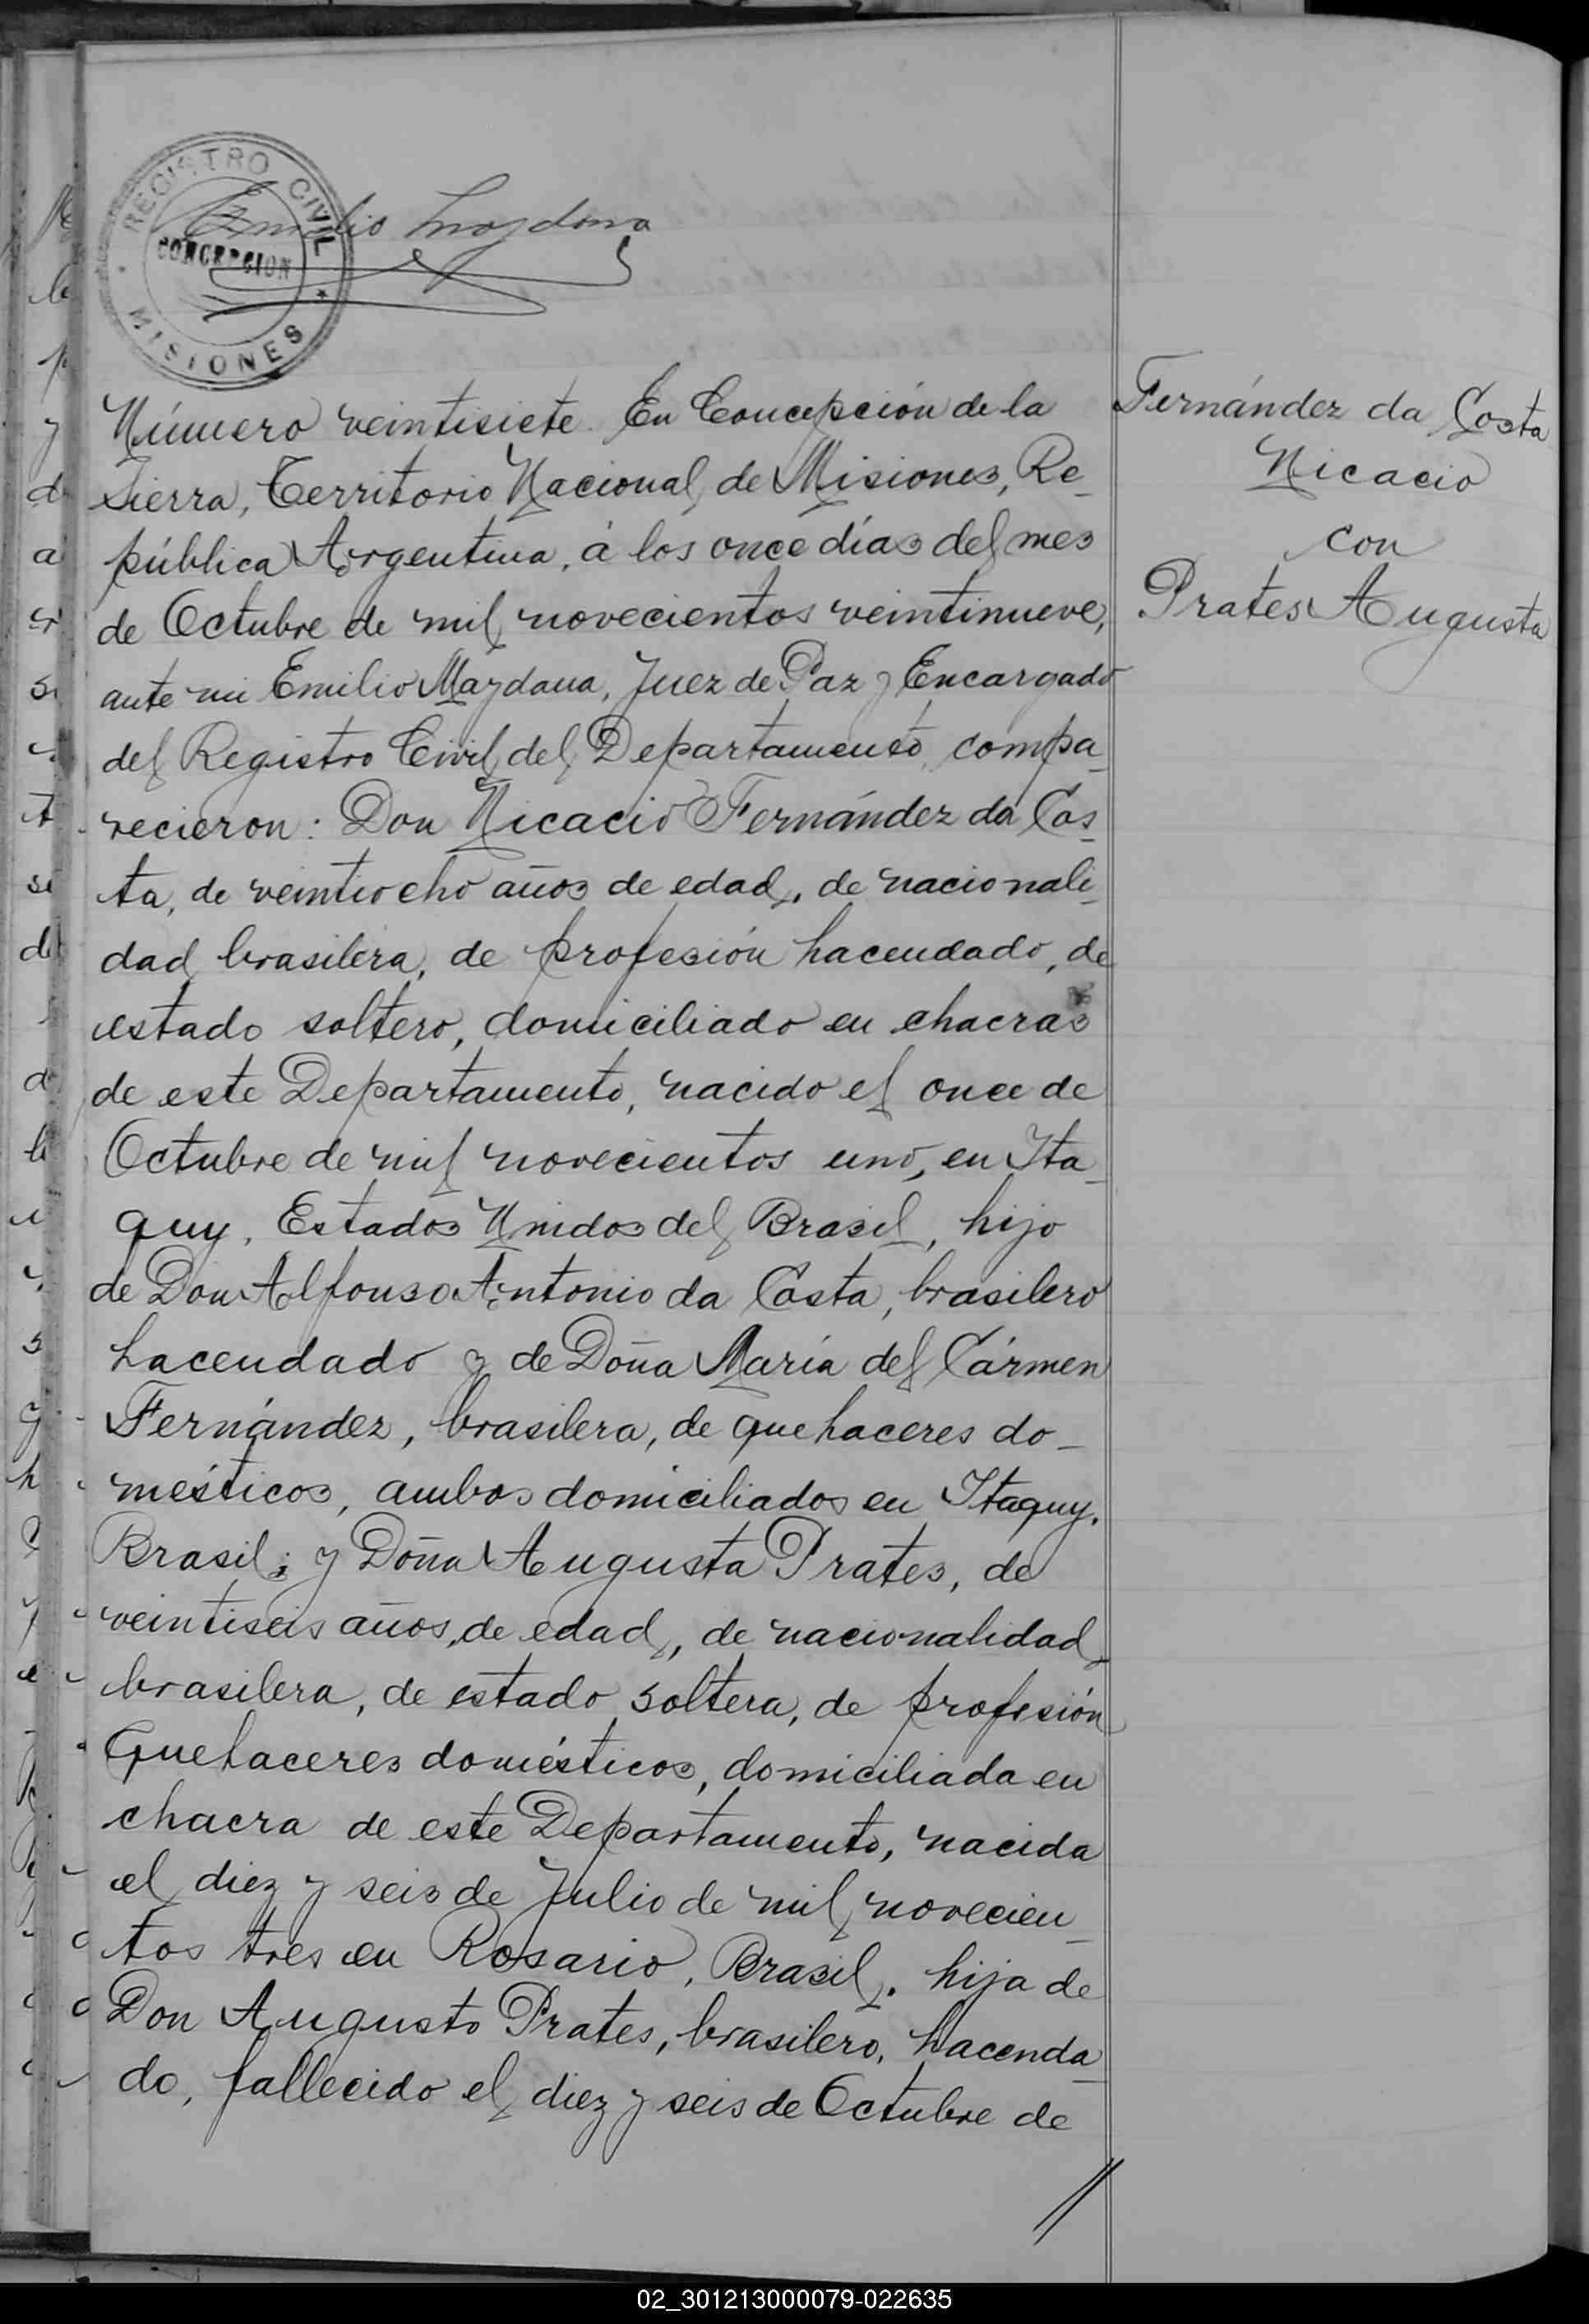 REGISTRO CIVIL
CONCEPCION
MISIONES
Emilio Maydana
Número veintisiete. En Concepción de la
Sierra, Territorio Nacional de Misiones, Re-
pública Argentina, á los once días del mes
de Octubre de mil novecientos veintinueve,
ante mi Emilio Maydana, Juez de Paz y Encargado
del Registro Civil del Departamento, compa-
recieron: Don Nicacio Fernández da Cos-
ta, de veintiocho años de edad, de nacionali-
dad brasilera, de profesión hacendado, de
estado soltero, domiciliado en chacras
de este Departamento, nacido el once de
Octubre de mil novecientos uno, en Ita-
quy, Estados Unidos del Brasil, hijo
de Don Alfonso Antonio da Costa, brasilero
hacendado y de Doña María del Cármen
Fernández, brasilera, de quehaceres do-
mésticos, ambos domiciliados en Itaquy.
Brasil; y Doña Augusta Prates, de
veintiseis años, de edad, de nacionalidad
brasilera, de estado soltera, de profesión
quehaceres domésticos, domiciliada en
chacra de este Departamento, nacida
el diez y seis de Julio de mil novecien-
tos tres en Rosario, Brasil. hija de
Don Augusto Prates, brasilero, hacenda-
do, fallecido el diez y seis de Octubre de
//
Fernández da Costa
Nicacio
con
Prates Augusta
02_301213000079-022635